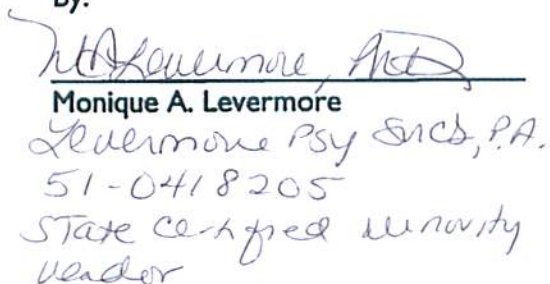 By:
MA Levermore, PhD
Monique A. Levermore
Levermore Psy Srvcs, P.A.
51-0418205
State Certified minority
vendor